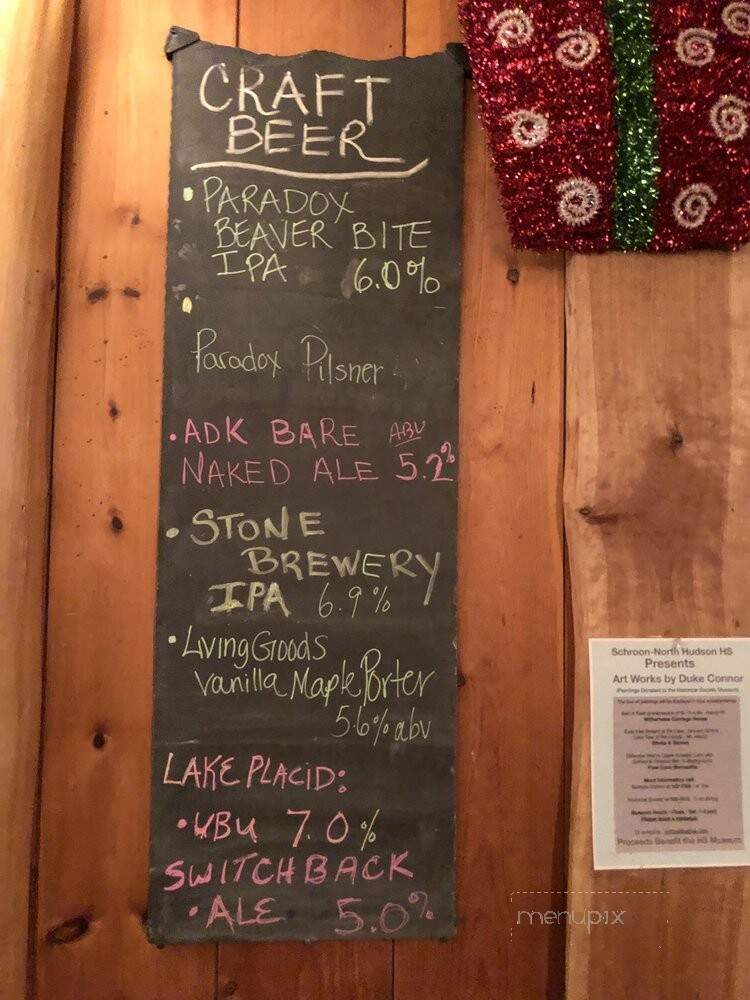 CRAFT
BEER
• PARADOX
BEAVER BITE
IPA 6.0%
•
Paradox Pilsner
• ADK BARE ABV
NAKED ALE 5.2%
• STONE
BREWERY
IPA 6.9%
• Living Goods
Vanilla Maple Porter
5.6% abv
LAKE PLACID:
• UBU 7.0%
SWITCHBACK
• ALE 5.0%
Schroon-North Hudson HS
Presents
Art Works by Duke Connor
Proceeds Benefit the HS Museum
menupix